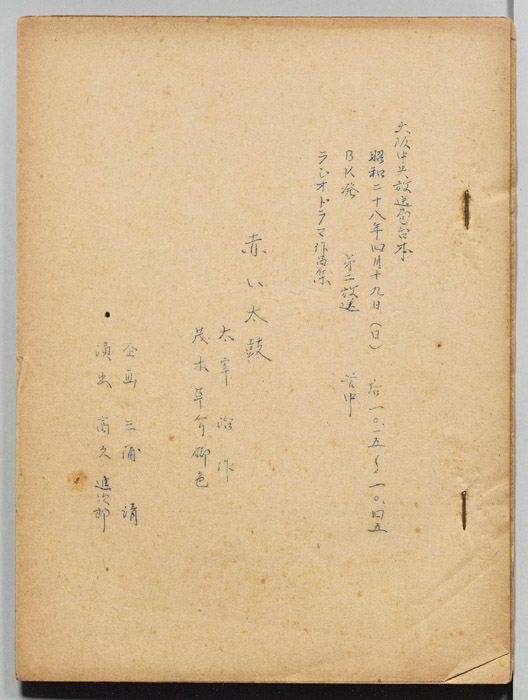 大阪中央放送局台本
昭和二十八年四月十九日（日） 后一〇.一五～一〇.四五
BK発 第二放送 管中
ラジオドラマ作品集
赤い太鼓
太宰治作
茂木草介脚色
企画 三浦 清
演出 高久進次郎